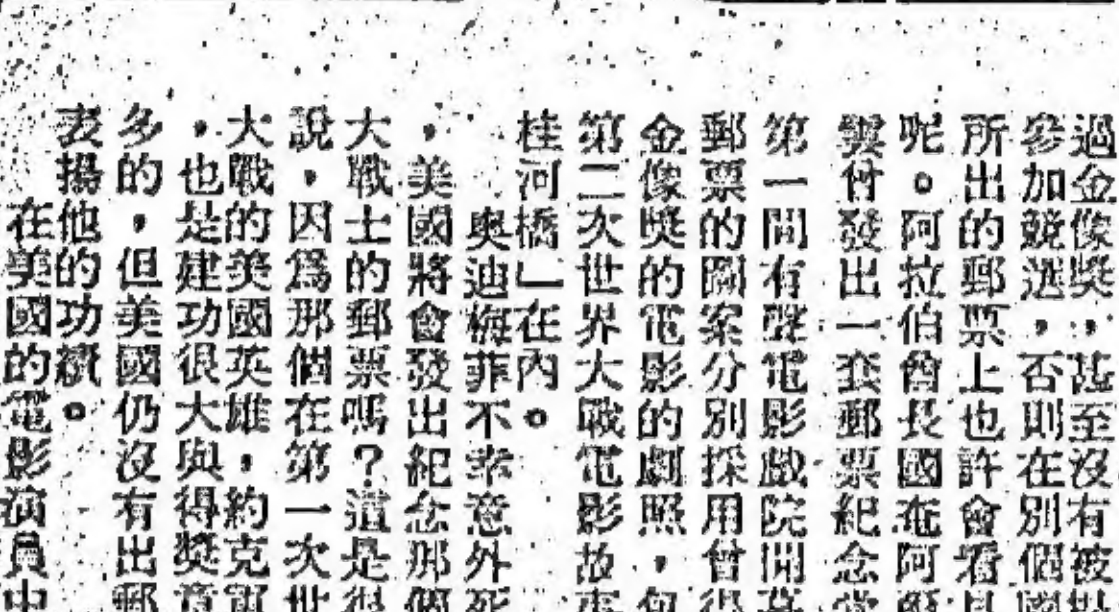 過金像獎，甚至沒有被
參加競選，否則在別個國
所出的郵票上也許會看見
呢。阿拉伯酋長國在阿
曾發出一套郵票紀念當
第一間有聲電影戲院開幕
郵票的圖案分別採用曾得
金像獎的電影的劇照，包
第二次世界大戰電影故事
桂河橋」在內。
奧迪梅菲不幸意外死
，美國將會發出紀念那個
大戰士的郵票嗎？這是很
說，因為那個在第一次世
大戰的美國英雄，約克軍
，也是建功很大與得獎章
多的，但美國仍沒有出郵
表揚他的功績。
在美國的電影演員中